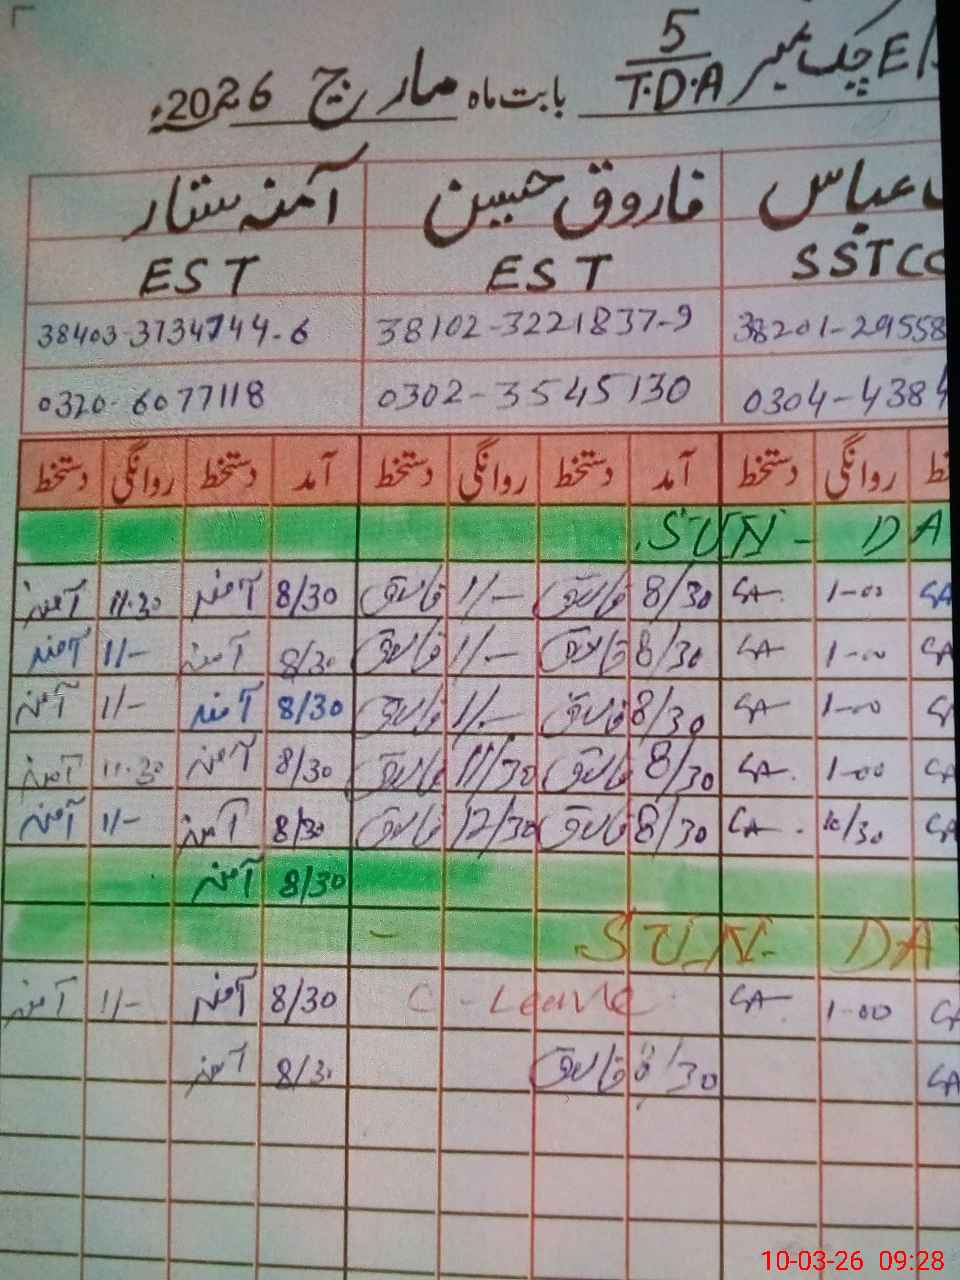 E چک نمبر 5/T.D.A بابت ماہ مارچ 2026ء
عباس فاروق حسین آمنہ ستار
SSTCO EST EST
38201-29558 38102-3221837-9 38403-3734744-6
0304-4384 0302-3545130 0320-6077118
روانگی دستخط آمد دستخط روانگی دستخط آمد دستخط روانگی دستخط
SUN - DA
SA 1-00 SA 8/30 فاروق 1/- فاروق 8/30 آمنہ 11.30 آمنہ
SA 1-00 SA 8/30 فاروق 1/- فاروق 8/30 آمنہ 1/- آمنہ
SA 1-00 SA 8/30 فاروق 1/- فاروق 8/30 آمنہ 1/- آمنہ
SA 1-00 SA 8/30 فاروق 11/30 فاروق 8/30 آمنہ 11.30 آمنہ
SA /30 SA 8/30 فاروق 12/30 فاروق 8/30 آمنہ 1/- آمنہ
8/30 آمنہ
SUN- DA
SA 1-00 SA C-Leave 8/30 آمنہ 1/- آمنہ
SA 8/30 فاروق 8/30 آمنہ
10-03-26 09:28